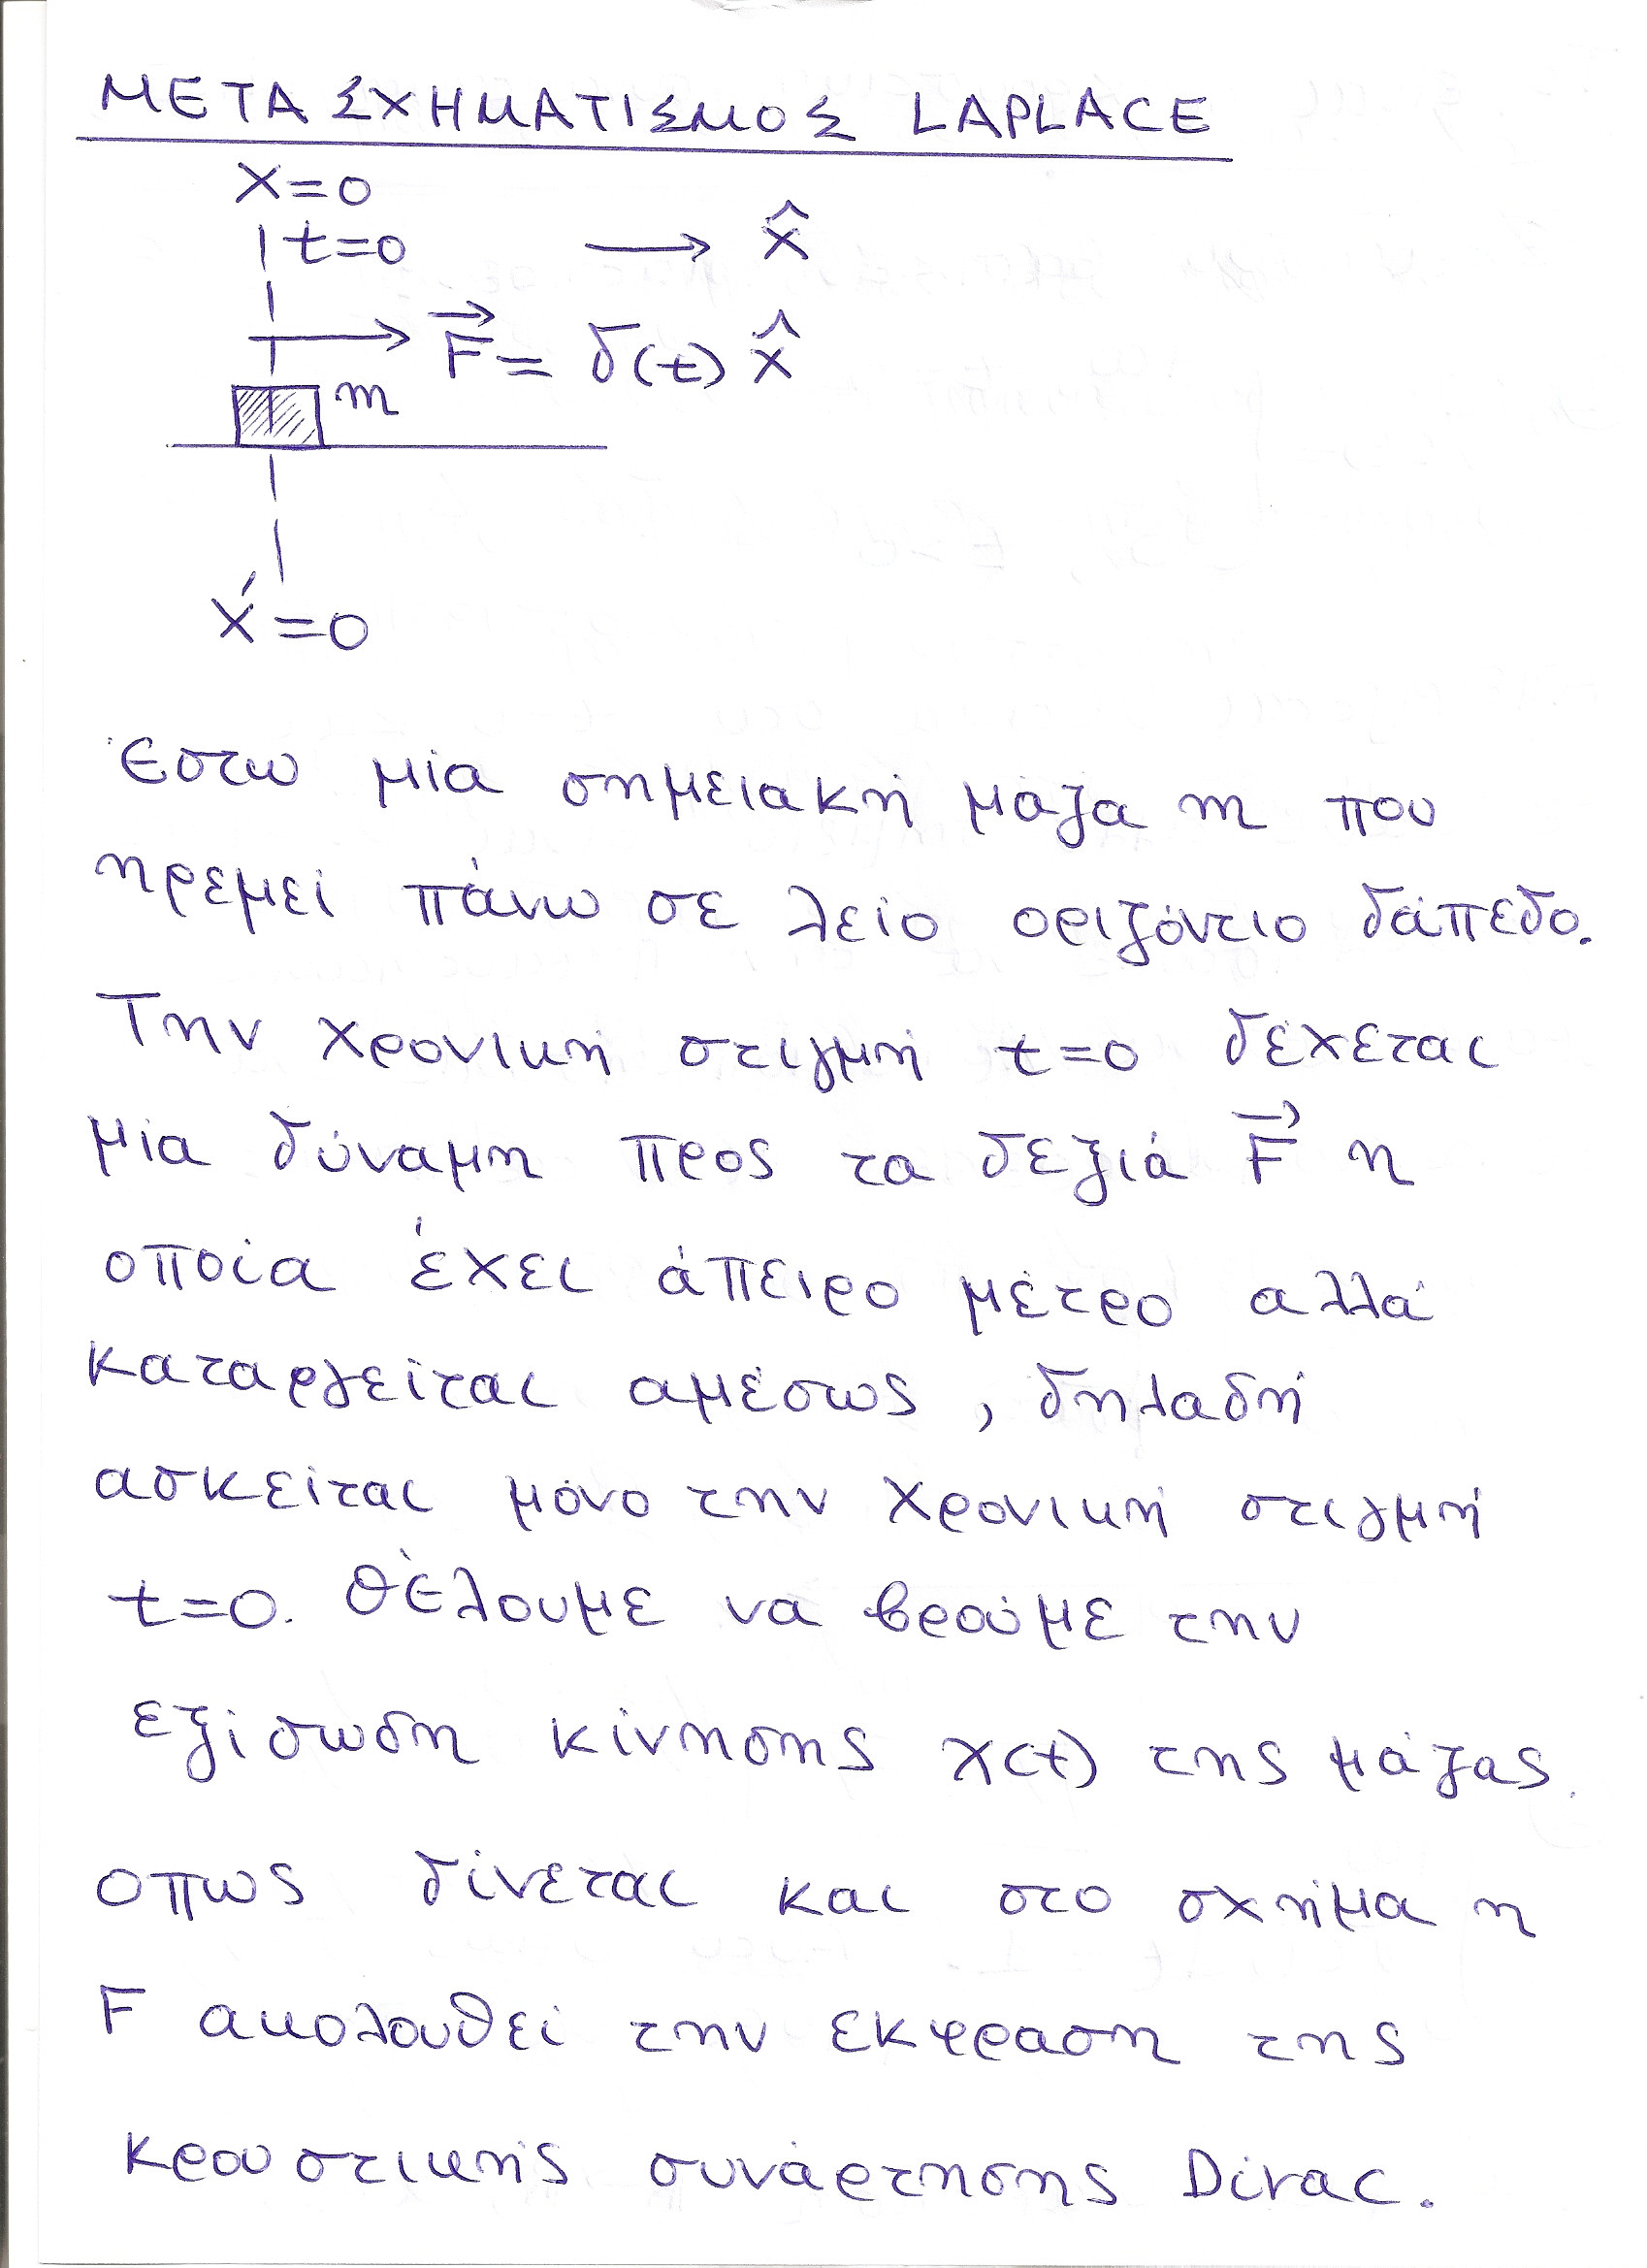 ΜΕΤΑΣΧΗΜΑΤΙΣΜΟΣ LAPLACE
x=0
t=0 → x̂
F⃗ = δ(t) x̂
m
x́=0
Έστω μία σημειακή μάζα m που
ηρεμεί πάνω σε λείο οριζόντιο δάπεδο.
Την χρονική στιγμή t=0 δέχεται
μία δύναμη προς τα δεξιά F⃗ η
οποία έχει άπειρο μέτρο αλλά
καταργείται αμέσως, δηλαδή
ασκείται μόνο την χρονική στιγμή
t=0. Θέλουμε να βρούμε την
εξίσωση κίνησης x(t) της μάζας.
οπως δίνεται και στο σχήμα η
F ακολουθεί την εκφραση της
κρουστικής συνάρτησης Dirac.